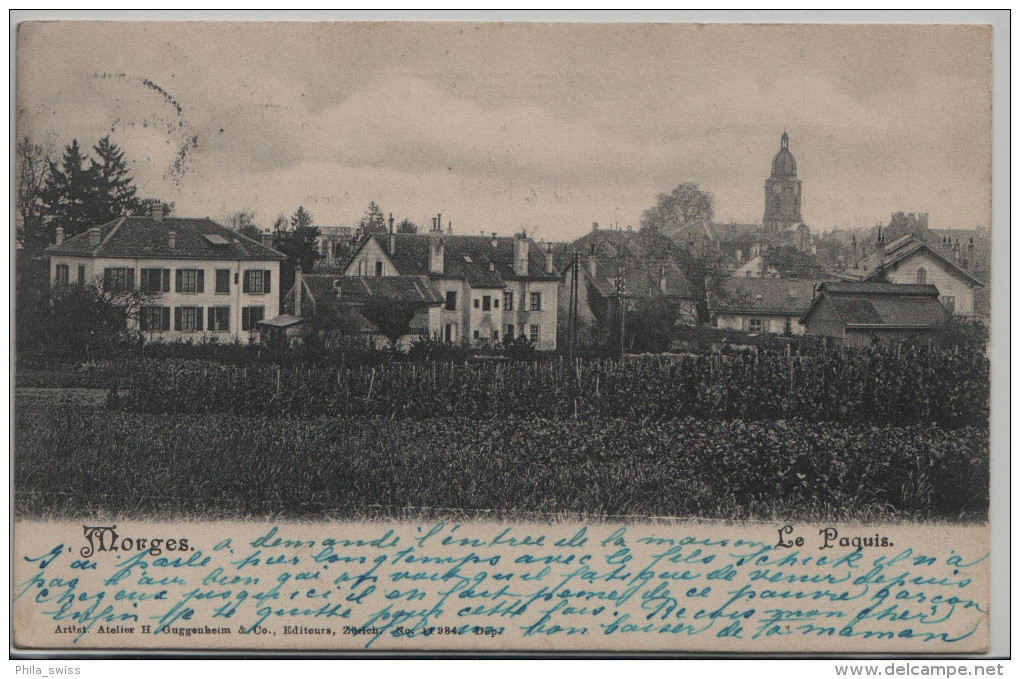 Morges.
Le Paquis.
a demandé à l'entrée de la maison
J'ai parlé hier longtemps avec le fils Schick il n'a
pas l'air bien gai on voit qu'il fatigue de venir depuis
chez eux jusqu'ici il en fait peine de ce pauvre garçon
Enfin je te quitte pour cette fois. Recois mon cher
un bon baiser de ta maman
Artist. Atelier H. Guggenheim & Co., Editeurs, Zürich. No. 17984. Dép.
Phila_swiss
www.delcampe.net